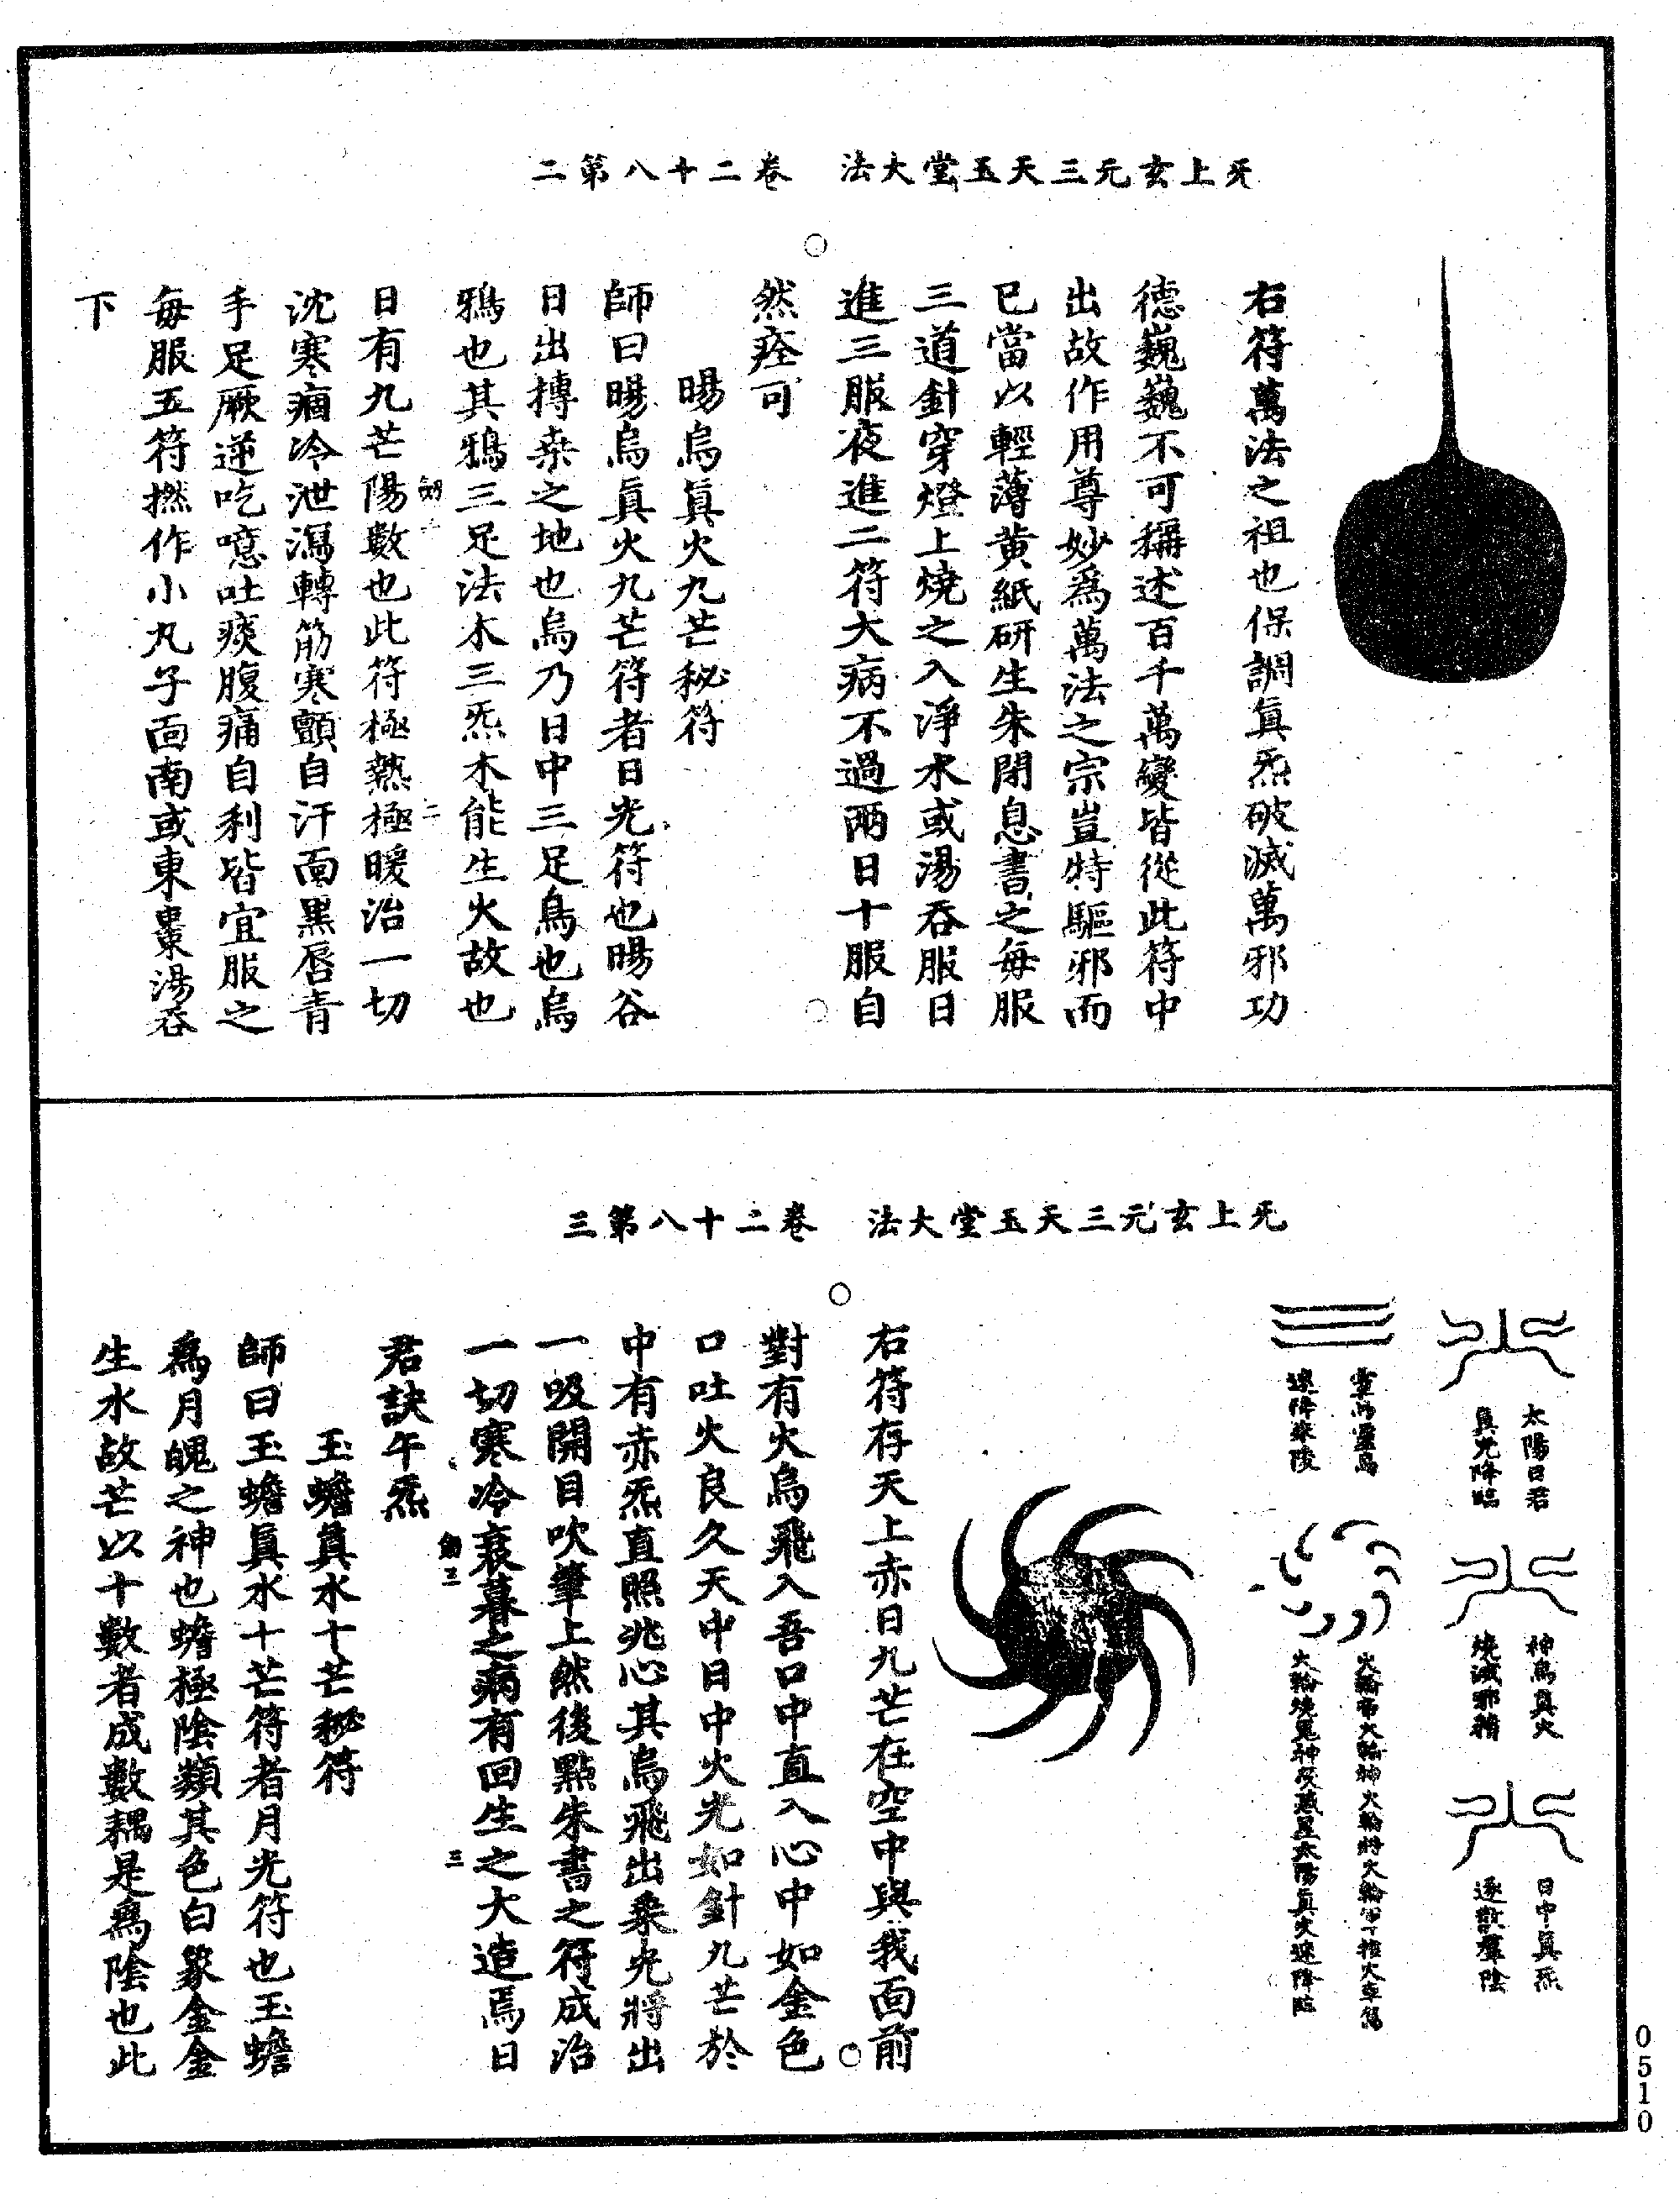 无上玄元三天玉堂大法 卷二十八第二
右符萬法之祖也保調眞炁破滅萬邪功
德巍巍不可稱述百千萬變皆從此符中
出故作用尊妙爲萬法之宗豈特驅邪而
已當以輕薄黃紙研生朱閉息書之每服
三道針穿燈上燒之入淨水或湯吞服日
進三服夜進二符大病不過兩日十服自
然痊可
暘烏眞火九芒秘符
師曰暘烏眞火九芒符者日光符也暘谷
日出摶桒之地也烏乃日中三足烏也烏
鴉也其鴉三足法木三炁木能生火故也
二
日有九芒陽數也此符極熱極暖治一切
沈寒痼冷泄瀉轉筋寒顫自汗面黑唇青
手足厥逆吃噫吐痰腹痛自利皆宜服之
每服五符撚作小丸子面南或東棗湯吞
下
无上玄元三天玉堂大法 卷二十八第三
太陽日君
眞炁降臨
神烏眞火
燒滅邪精
日中眞炁
逐散羣陰
速降來陵
右符存天上赤日九芒在空中與我面前
對有火烏飛入吾口中直入心中如金色
口吐火良久天中日中火光如針九芒於
中有赤炁直照兆心其烏飛出乗光將出
一吸開目吹筆上然後點朱書之符成治
一切寒冷衰暮之病有回生之大造焉日
三
君訣午炁
玉蟾眞水十芒秘符
師曰玉蟾眞水十芒符者月光符也玉蟾
爲月魄之神也蟾極陰類其色白篆金金
生水故芒以十數者成數耦是爲陰也此
0510